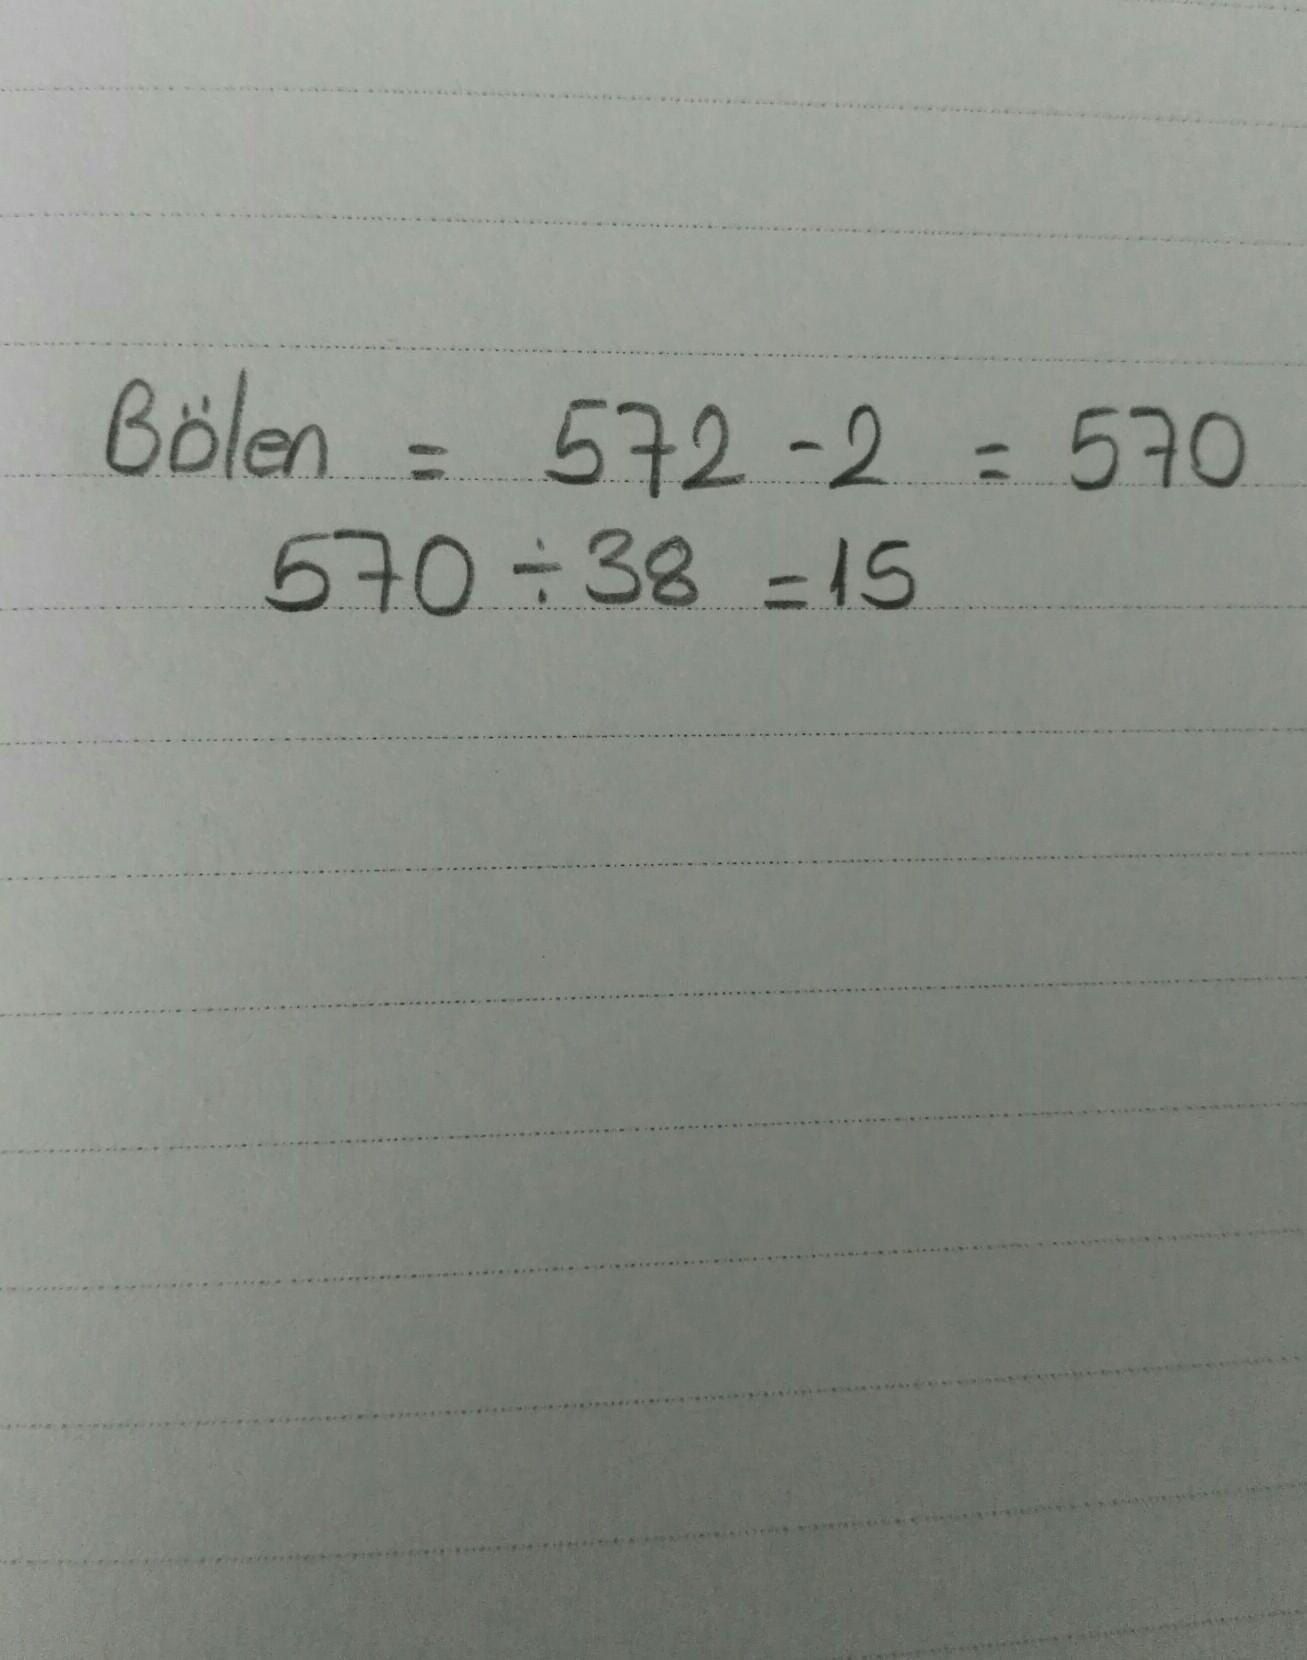 Bölen = 572 - 2 = 570
570 ÷ 38 = 15